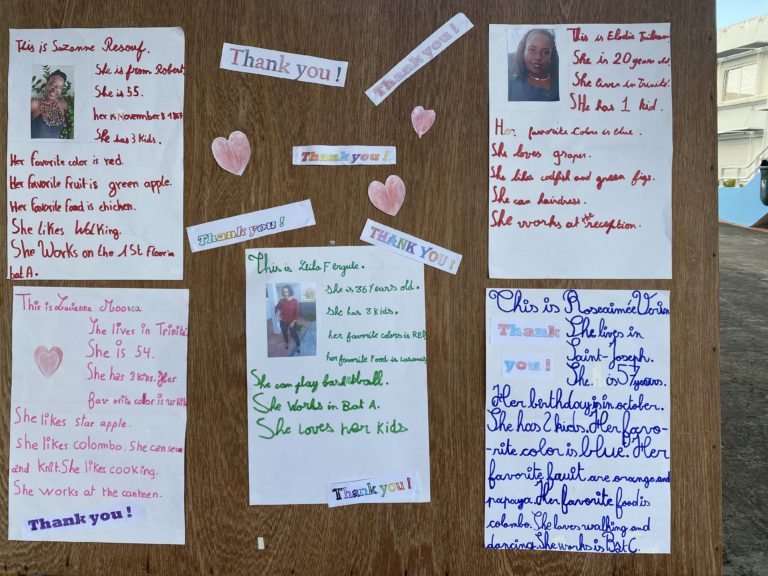 This is Suzanne Resouf.
She is from Robert
She is 55.
her is November 8 1967
She has 3 kids.
Her favorite color is red.
Her favorite fruit is green apple.
Her favorite food is chicken.
She likes Walking.
She Works on the 1st Floor in
bat A.
Thank you !
Thank you !
Thank you !
Thank you !
THANK YOU !
This is Elodie
She is 20 years old.
She lives in Trinité.
SHe has 1 kid.
Her favorite color is blue.
She loves grapes.
She like codfish and green figs.
She can hairdress.
She works at the reception.
This is Lucienne
She lives in Trinité
She is 54.
She has 3 kids. Her
favorite color is white
She likes star apple.
she likes colombo. She can sew
and knit. She likes cooking.
She works at the canteen.
Thank you !
This is Leila Fergule.
She is 36 years old.
She has 3 kids.
her favorite colors is RED
her favorite food is Lasagnas
She can play basketball.
She works in Bat A.
She loves her kids
Thank you !
This is Roseaimée Verin
Thank
you !
She lives in
Saint-Joseph.
She is 57 years.
Her birthday is in october.
She has 2 kids. Her favo-
-rite color is blue. Her
favorite fruit are orange and
papaya. Her favorite food is
colombo. She loves walking and
dancing. She works is Bat C.